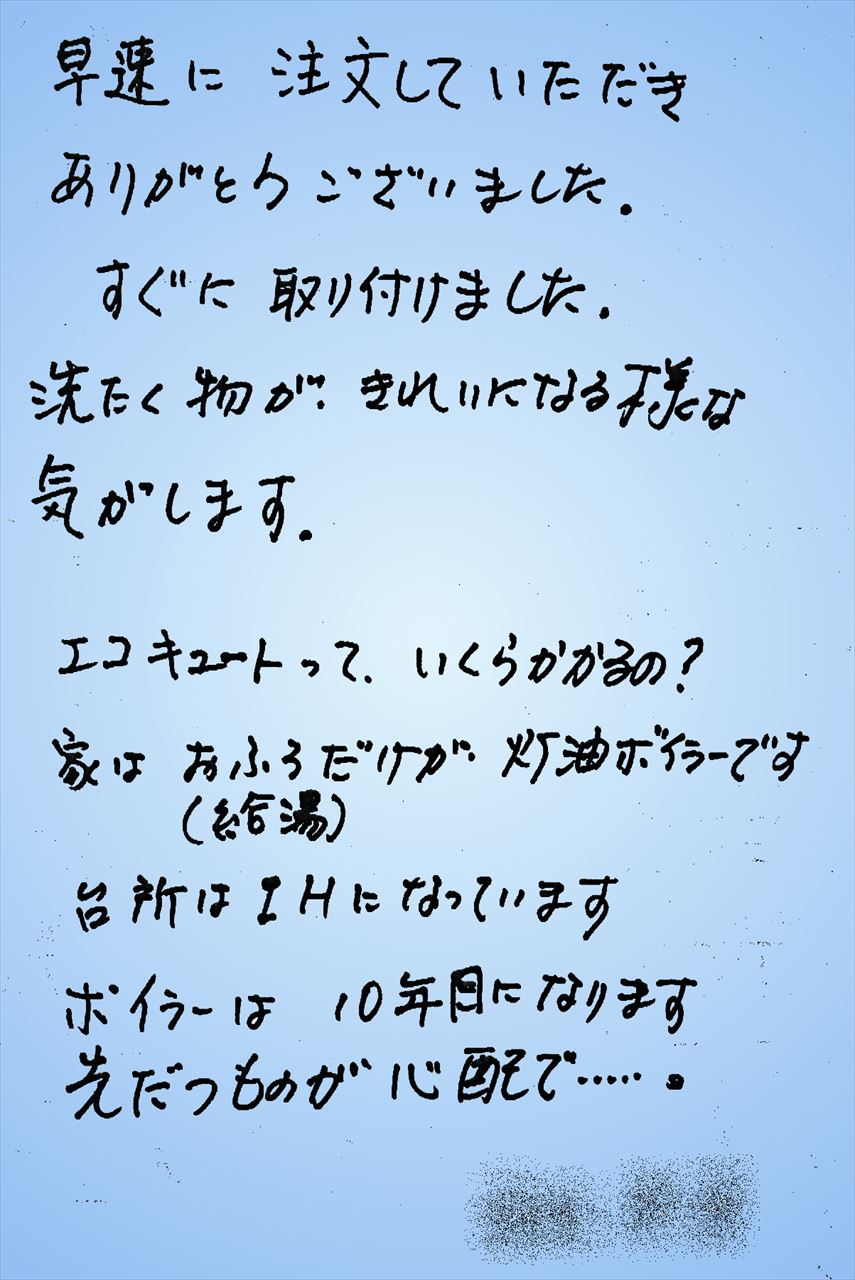 早速に 注文していただき
ありがとう ございました.
すぐに 取り付けました.
洗たく物が きれいになる様な
気がします.
エコキュートって. いくらかかるの?
家は おふろだけが 灯油ボイラーです
(給湯)
台所はIHになっています
ボイラーは 10年目になります
先だつものが 心配で……。